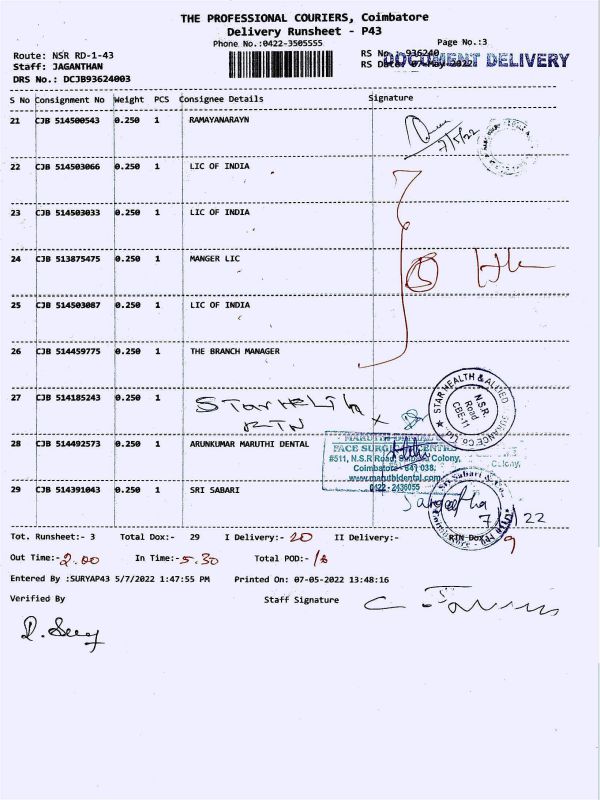 THE PROFESSIONAL COURIERS, Coimbatore
Delivery Runsheet - P43
Phone No.:0422-3505555
Page No.:3
Route: NSR RD-1-43
RS No. 936240
Staff: JAGANTHAN
RS Date: 07-May-2022
DOCUMENT DELIVERY
DRS No.: DCJB93624003
S No Consignment No Weight PCS Consignee Details Signature
21 CJB 514500543 0.250 1 RAMAYANARAYN
7/5/22
22 CJB 514503066 0.250 1 LIC OF INDIA
23 CJB 514503033 0.250 1 LIC OF INDIA
24 CJB 513875475 0.250 1 MANGER LIC
5
25 CJB 514503087 0.250 1 LIC OF INDIA
26 CJB 514459775 0.250 1 THE BRANCH MANAGER
27 CJB 514185243 0.250 1
RTN
STAR HEALTH & ALLIED
N.S.R.
Road
CBE-11
28 CJB 514492573 0.250 1 ARUNKUMAR MARUTHI DENTAL
MARUTHI DENTAL
FACE SURGI CENTRE
#511, N.S.R Road, Colony,
Coimbatore - 641 038.
www.maruthidental.com
0422 - 2436055
29 CJB 514391043 0.250 1 SRI SABARI
Sri Sabari
Sangeetha
7 22
Tot. Runsheet:- 3 Total Dox:- 29 I Delivery:- 20 II Delivery:- RTN Dox:- 9
Out Time:- 2.00 In Time:- 5.30 Total POD:-
Entered By :SURYAP43 5/7/2022 1:47:55 PM Printed On: 07-05-2022 13:48:16
Verified By Staff Signature